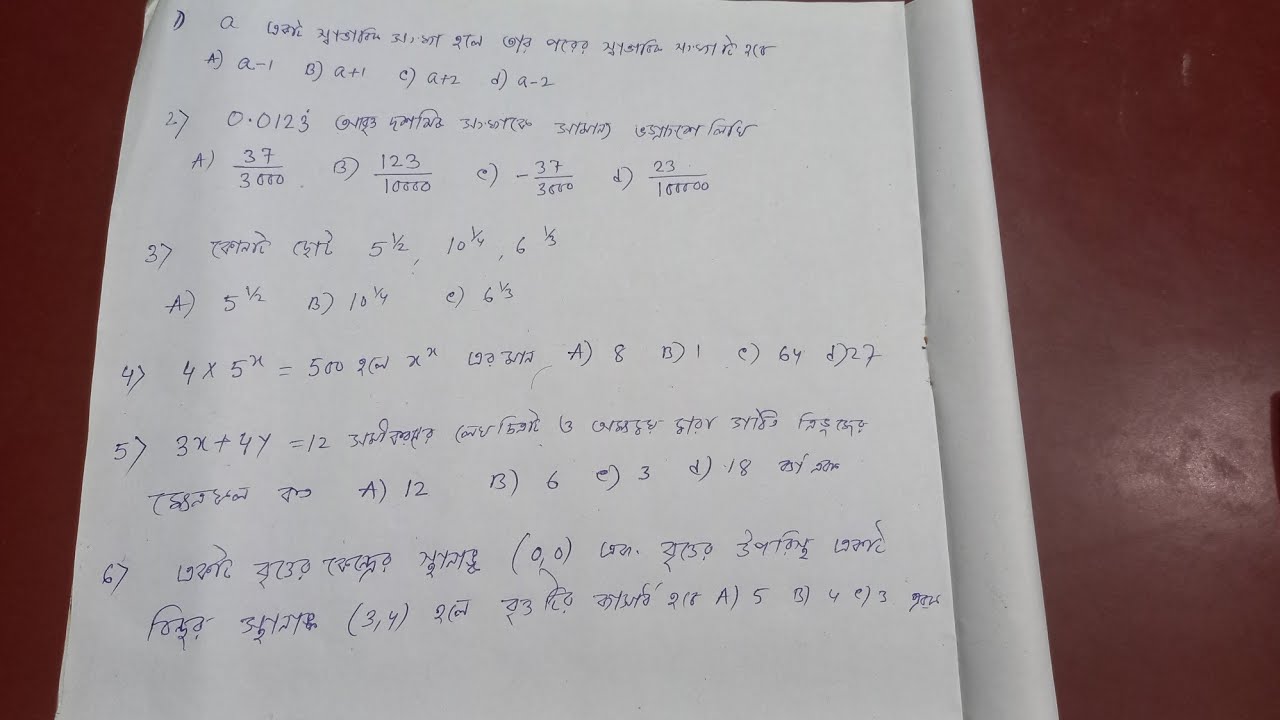 1) a একটি স্বাভাবিক সংখ্যা হলে তার পরের স্বাভাবিক সংখ্যাটি হবে
A) a-1 B) a+1 c) a+2 d) a-2
2) 0.0123̇ আবৃত্ত দশমিক সংখ্যাকে সামান্য ভগ্নাংশে লিখি
A) 37/3000 B) 123/10000 c) -37/3000 d) 23/100000
3) কোনটি ছোট 5^1/2, 10^1/4, 6^1/3
A) 5^1/2 B) 10^1/4 c) 6^1/3
4) 4 x 5^x = 500 হলে x^x এর মান A) 8 B) 1 c) 64 d) 27
5) 3x+4y =12 সমীকরণের লেখচিত্রটি ও অক্ষদ্বয় দ্বারা গঠিত ত্রিভুজের
ক্ষেত্রফল কত A) 12 B) 6 c) 3 d) 18 বর্গ একক
6) একটি বৃত্তের কেন্দ্রের স্থানাঙ্ক (0,0) এবং বৃত্তের উপরিস্থ একটি
বিন্দুর স্থানাঙ্ক (3,4) হলে বৃত্তটির ব্যাসার্ধ হবে A) 5 B) 4 c) 3 একক